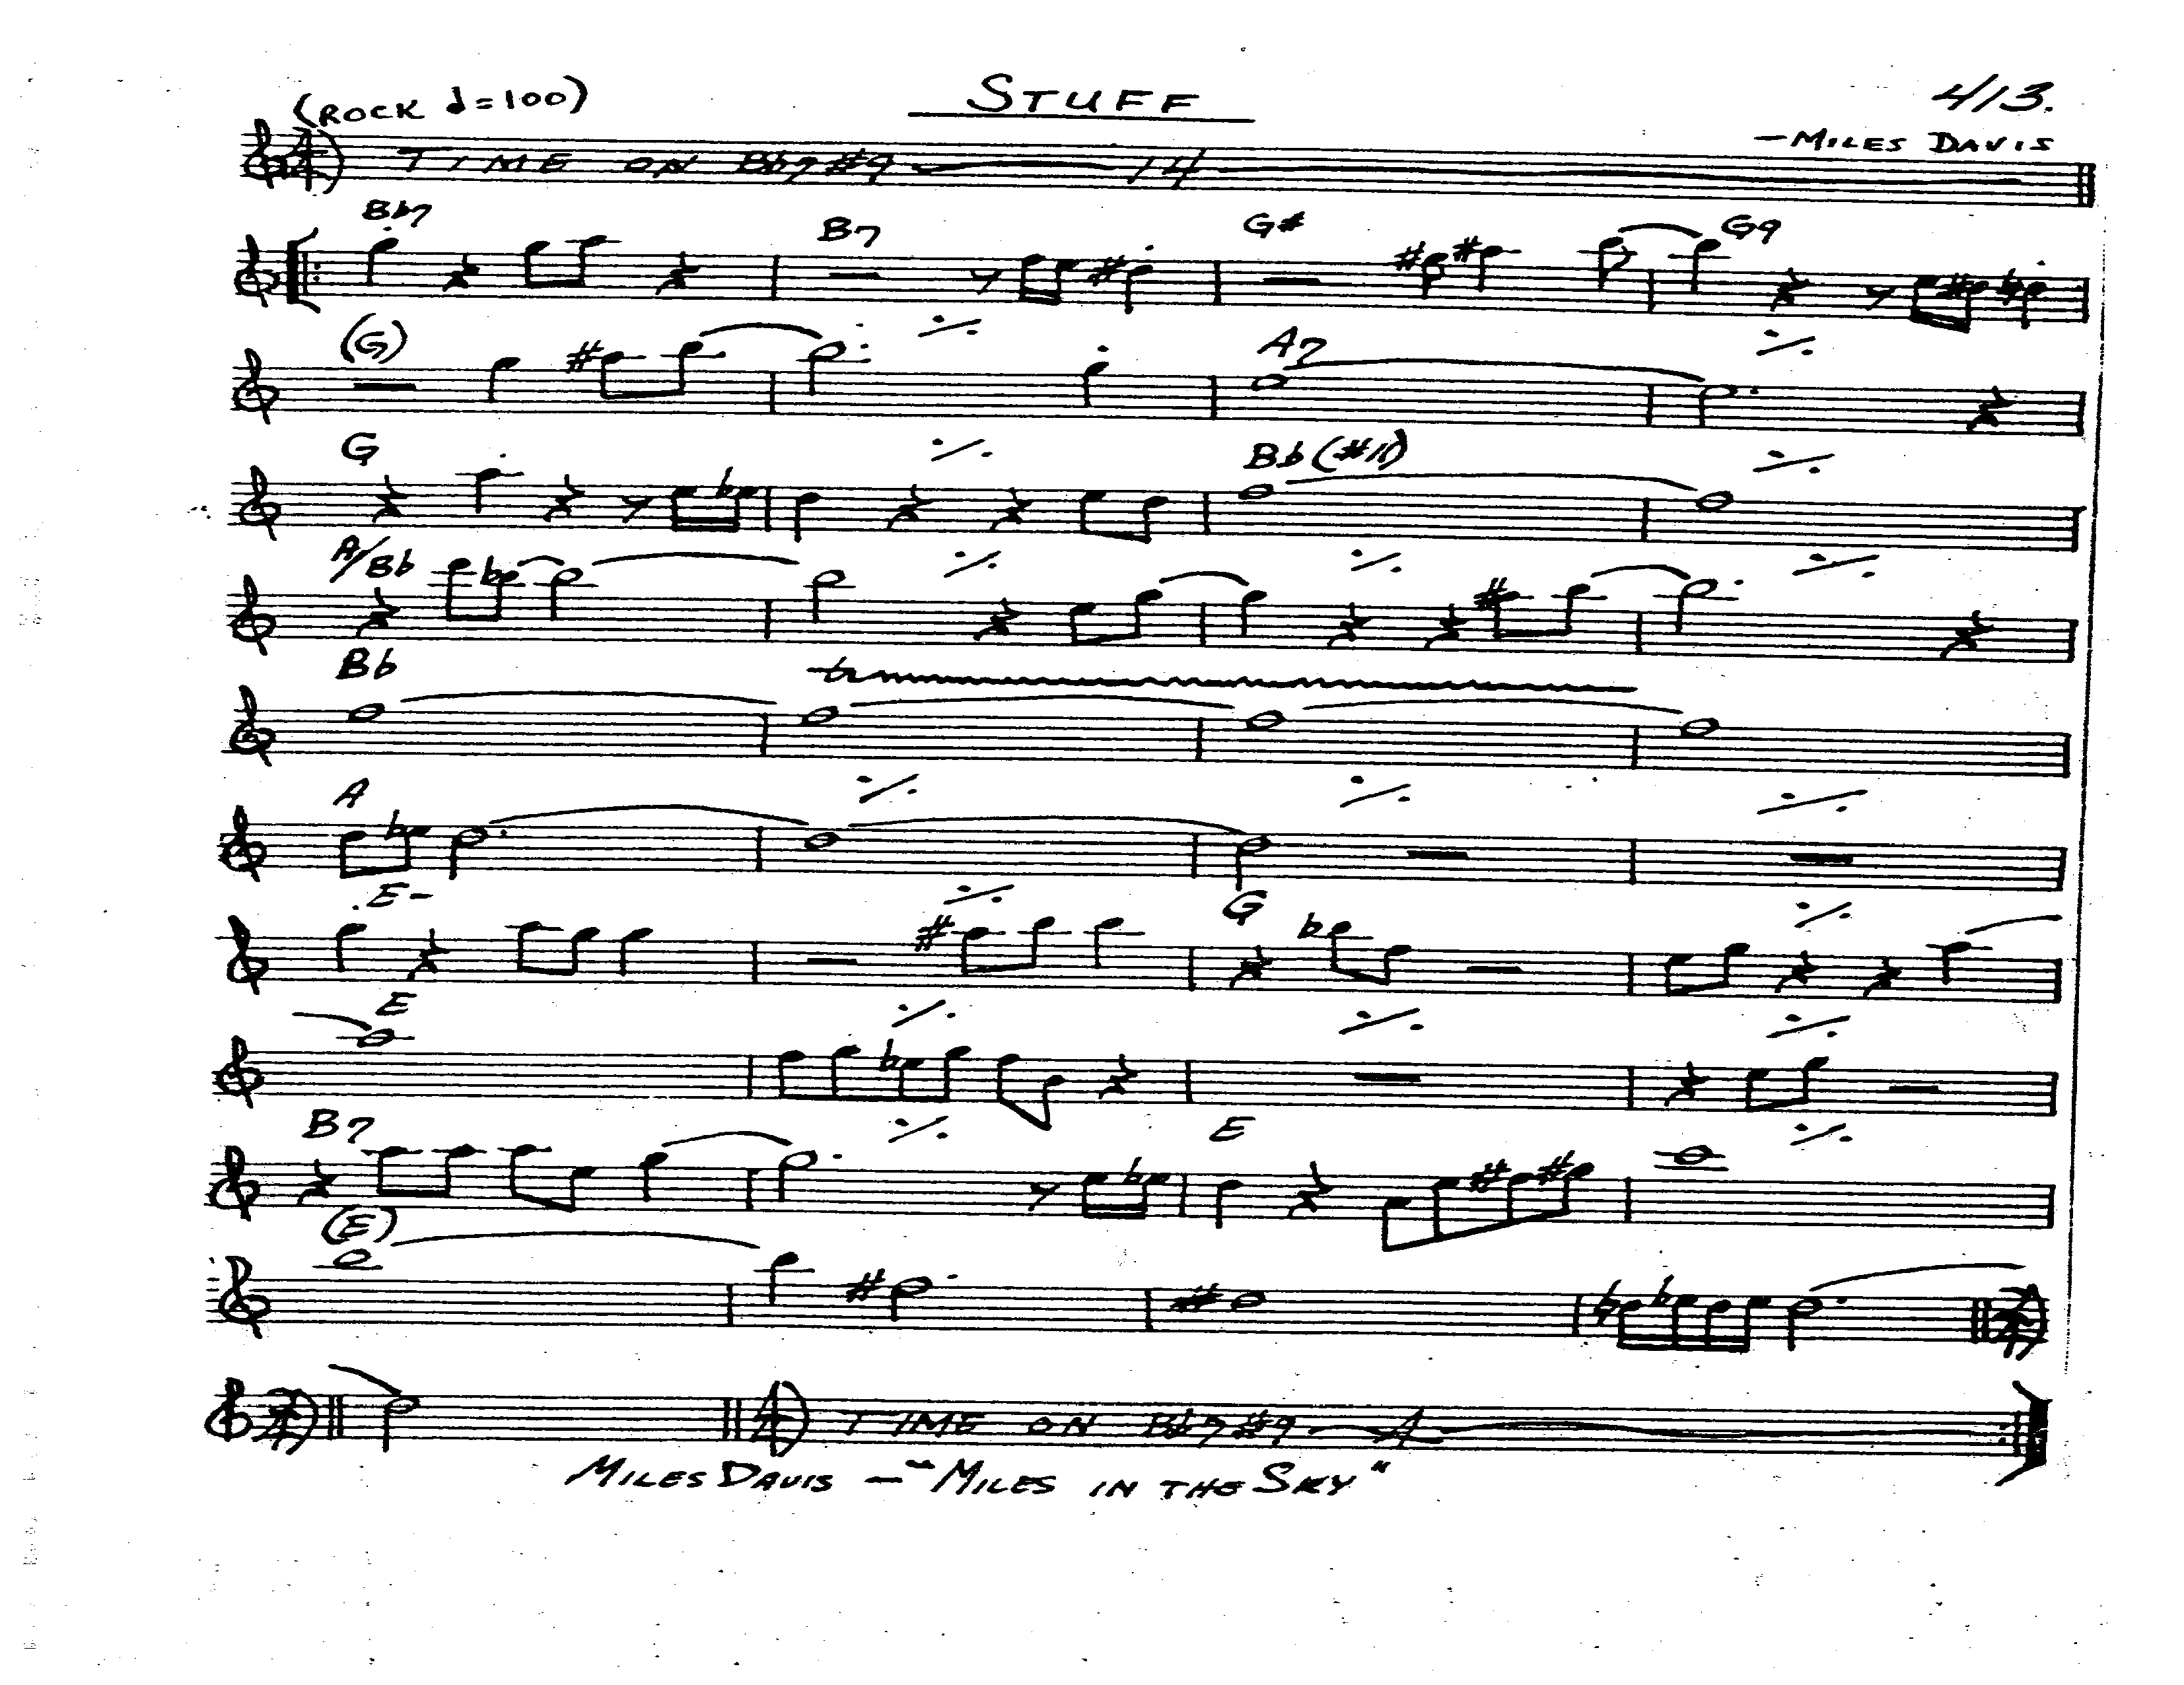 (ROCK ♩=100)
STUFF
413.
—MILES DAVIS
4) TIME ON Bb7#9 14
Bb7 B7 G# G9
(G) ٪ A7 ٪
G ٪ Bb(#11) ٪
A/Bb ٪ ٪ ٪
Bb tr
A ٪ ٪ ٪
E- ٪ G ٪
E ٪ ٪ ٪
B7 ٪ E ٪
(E)
4) TIME ON Bb7#9
MILES DAVIS —"MILES IN THE SKY"